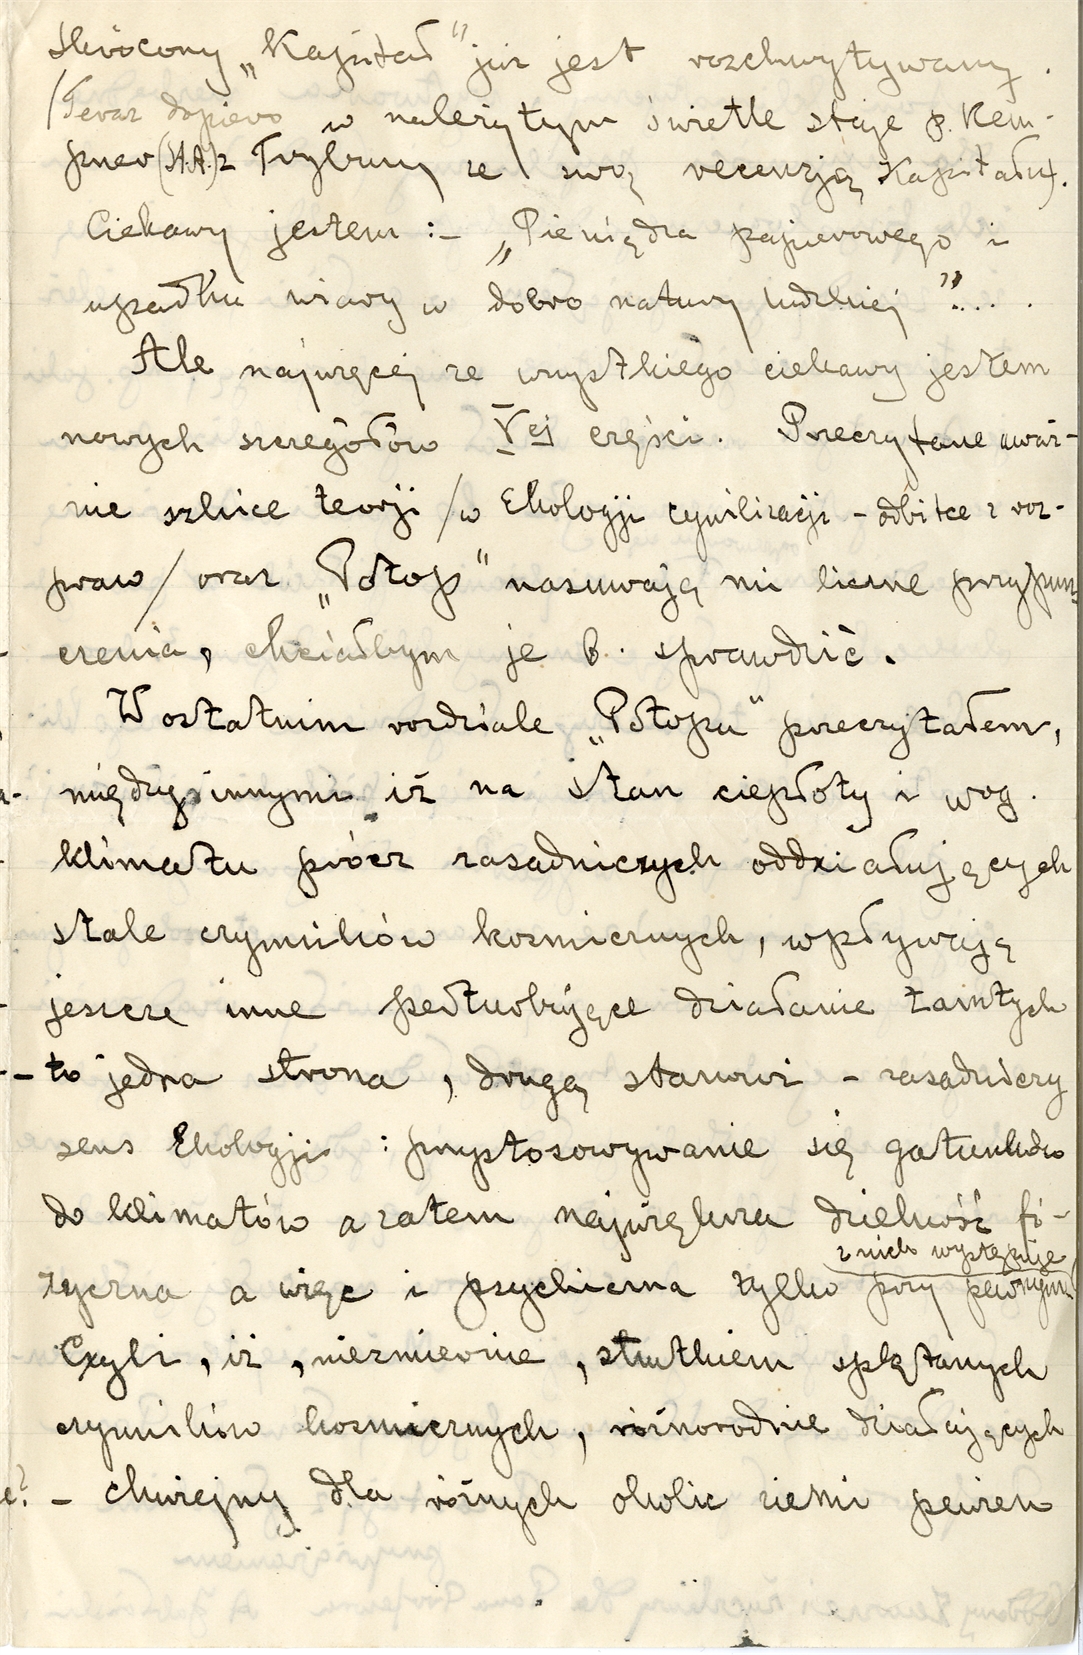 skrócony „Kapitał” już jest rozchwytywany.
/Teraz dopiero w należytym świetle staje p. Kem-
pner (St.A.) z Trybuny ze swą recenzją Kapitału).
Ciekawy jestem :- „Pieniądza papierowego i
upadku wiary w dobro natury ludzkiej”... .
Ale najwięcej ze wszystkiego ciekawy jestem
nowych szczegółów Vej części. Przeczytane uważ-
nie szkice teorji /w Ekologji cywilizacji - odbitce z roz-
praw/ oraz „Potop” nasuwają mi liczne przypusz
czenia, chciałbym je b. sprawdzić.
W ostatnim rozdziale „Potopu” przeczytałem,
między innymi iż na stan ciepłoty i wog.
klimatu prócz zasadniczych oddziałujących
stale czynników kosmicznych, wpływają
jeszcze inne perturbujące działanie tamtych
- to jedna strona, drugą stanowi - zasadniczy
sens Ekologji : przystosowywanie się gatunków
do klimatów a zatem największa dzielność fi-
z nich występuje
zyczna a więc i psychiczna tylko przy pewnym
Czyli, iż, niezmiernie, skutkiem splątanych
czynników kosmicznych, różnorodnie działających
- chwiejny dla różnych okolic ziemi pewien